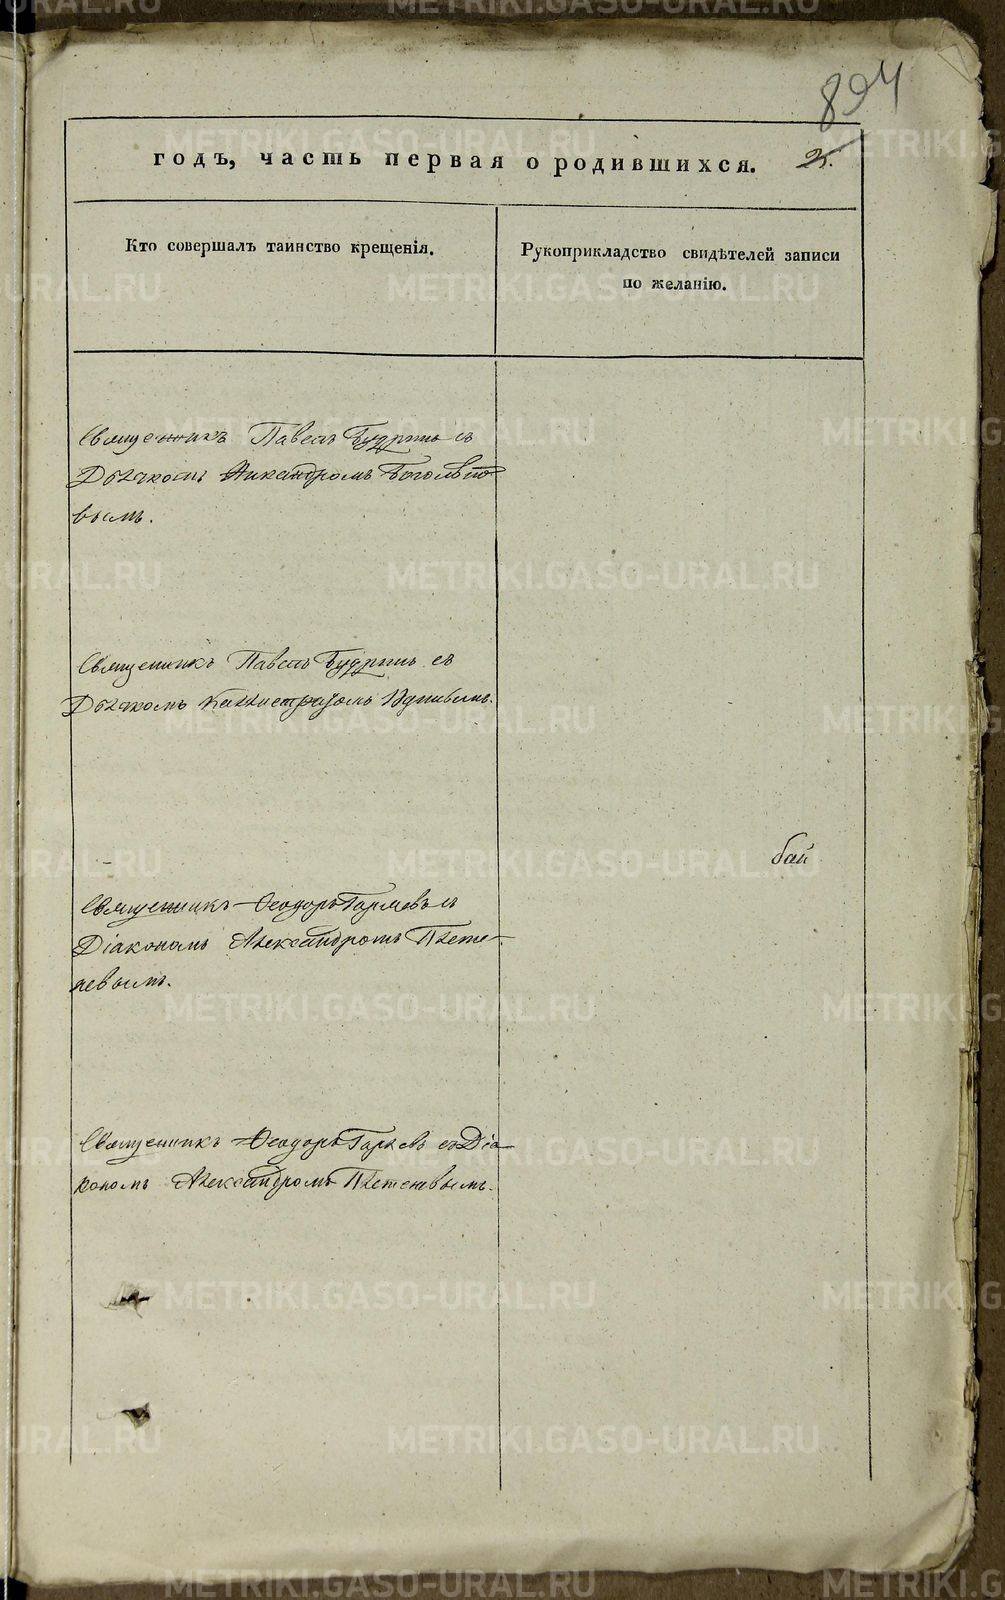 894
годъ, часть первая о родившихся. 2.
Кто совершалъ таинство крещенія.
Рукоприкладство свидѣтелей записи
по желанію.
Священникъ Павелъ Будринъ съ
Дьячкомъ Никандромъ Боголѣпо-
вымъ.
Священникъ Павелъ Будринъ съ
Дьячкомъ Каллистратомъ
бай
Священникъ Ѳеодоръ съ
Діакономъ Александромъ Плете-
невымъ.
Священникъ Ѳеодоръ съ Діа-
кономъ Александромъ Плетеневымъ.
METRIKI.GASO-URAL.RU